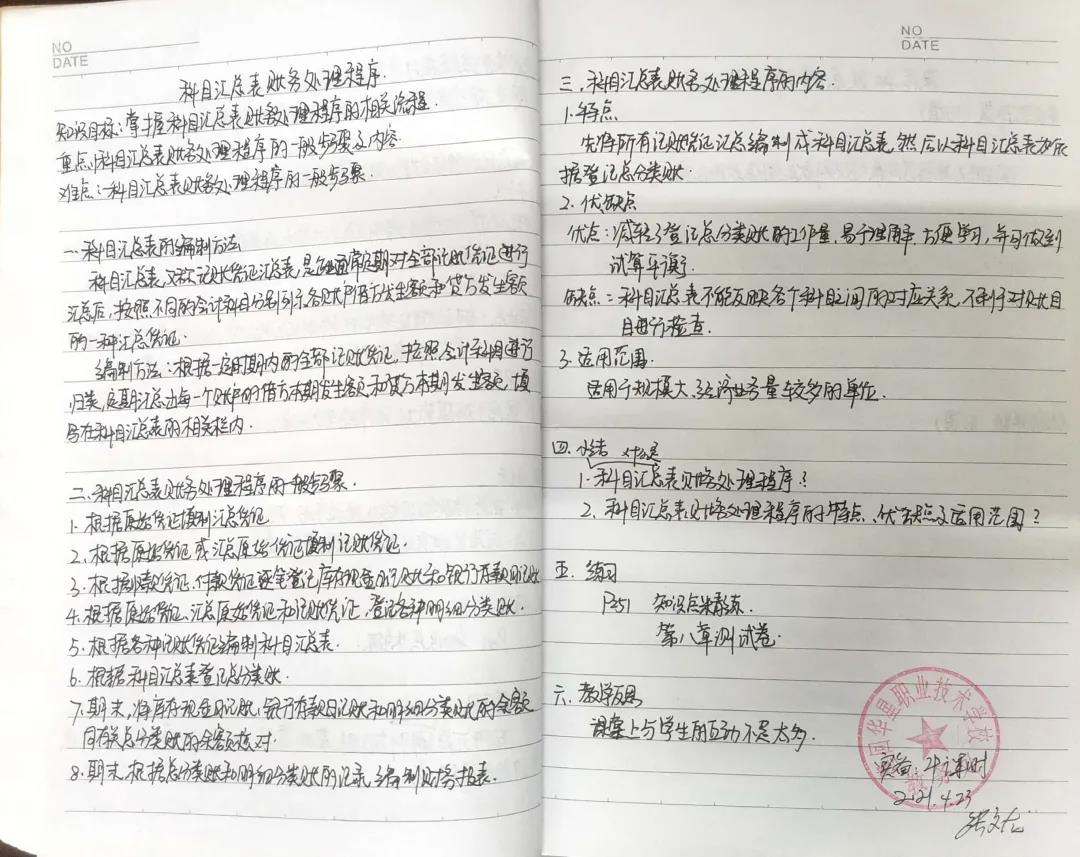 NO
DATE
科目汇总表账务处理程序
知识目标：掌握科目汇总表账务处理程序的相关流程
重点：科目汇总表账务处理程序的一般步骤及内容
难点：科目汇总表账务处理程序的一般步骤
一、科目汇总表的编制方法
科目汇总表，又称记账凭证汇总表，是企业通常定期对全部记账凭证进行
汇总后，按照不同的会计科目分别列示各账户借方发生额和贷方发生额
的一种汇总凭证.
编制方法：根据一定时期内的全部记账凭证，按照会计科目进行
归类，定期汇总出每一个账户的借方本期发生额和贷方本期发生额，填
写在科目汇总表的相关栏内.
二、科目汇总表账务处理程序的一般步骤.
1. 根据原始凭证填制汇总凭证
2. 根据原始凭证或汇总原始凭证填制记账凭证.
3. 根据收款凭证、付款凭证逐笔登记库存现金日记账和银行存款日记账
4. 根据原始凭证、汇总原始凭证和记账凭证，登记各种明细分类账.
5. 根据各种记账凭证编制科目汇总表.
6. 根据科目汇总表登记总分类账.
7. 期末，将库存现金日记账、银行存款日记账和明细分类账的余额
同有关总分类账的余额核对.
8. 期末，根据总分类账和明细分类账的记录，编制财务报表.
NO
DATE
三、科目汇总表账务处理程序的内容.
1. 特点
先将所有记账凭证汇总编制成科目汇总表，然后以科目汇总表为依
据登记总分类账.
2. 优缺点
优点：减轻了登记总分类账的工作量，易于理解，方便学习，并可做到
试算平衡
缺点：科目汇总表不能反映各个科目之间的对应关系，不利于对账目
目进行检查.
3. 适用范围
适用于规模大、经济业务量较多的单位.
四. 小结 什么是
1. 科目汇总表账务处理程序？
2. 科目汇总表账务处理程序的特点、优缺点及适用范围？
五. 练习
P251 知识点训练.
第八章测试卷.
六. 教学反思
课堂上与学生的互动不是太多.
华星职业技术学校
实备：4课时
2021.4.23